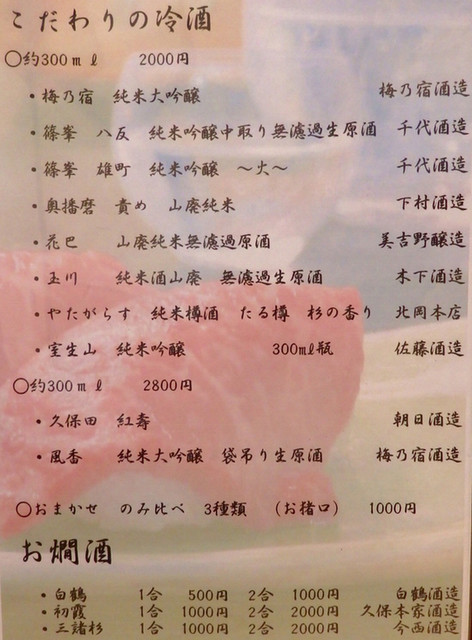 こだわりの冷酒
○約300mℓ 2000円
・梅乃宿 純米大吟醸 梅乃宿酒造
・篠峯 八反 純米吟醸中取り無濾過生原酒 千代酒造
・篠峯 雄町 純米吟醸 ～火～ 千代酒造
・奥播磨 責め 山廃純米 下村酒造
・花巴 山廃純米無濾過原酒 美吉野醸造
・玉川 純米酒山廃 無濾過生原酒 木下酒造
・やたがらす 純米樽酒 たる樽 杉の香り 北岡本店
・室生山 純米吟醸 300mℓ瓶 佐藤酒造
○約300mℓ 2800円
・久保田 紅寿 朝日酒造
・風香 純米大吟醸 袋吊り生原酒 梅乃宿酒造
○おまかせ のみ比べ 3種類 (お猪口) 1000円
お燗酒
・白鶴 1合 500円 2合 1000円 白鶴酒造
・初霞 1合 1000円 2合 2000円 久保本家酒造
・三諸杉 1合 1000円 2合 2000円 今西酒造